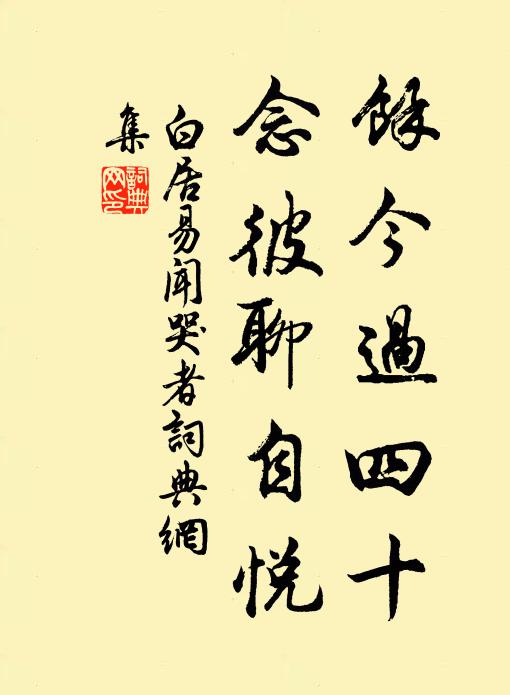 餘今過四十
念彼聊自悅
白居易聞哭者詞典網
集
詞典
网印